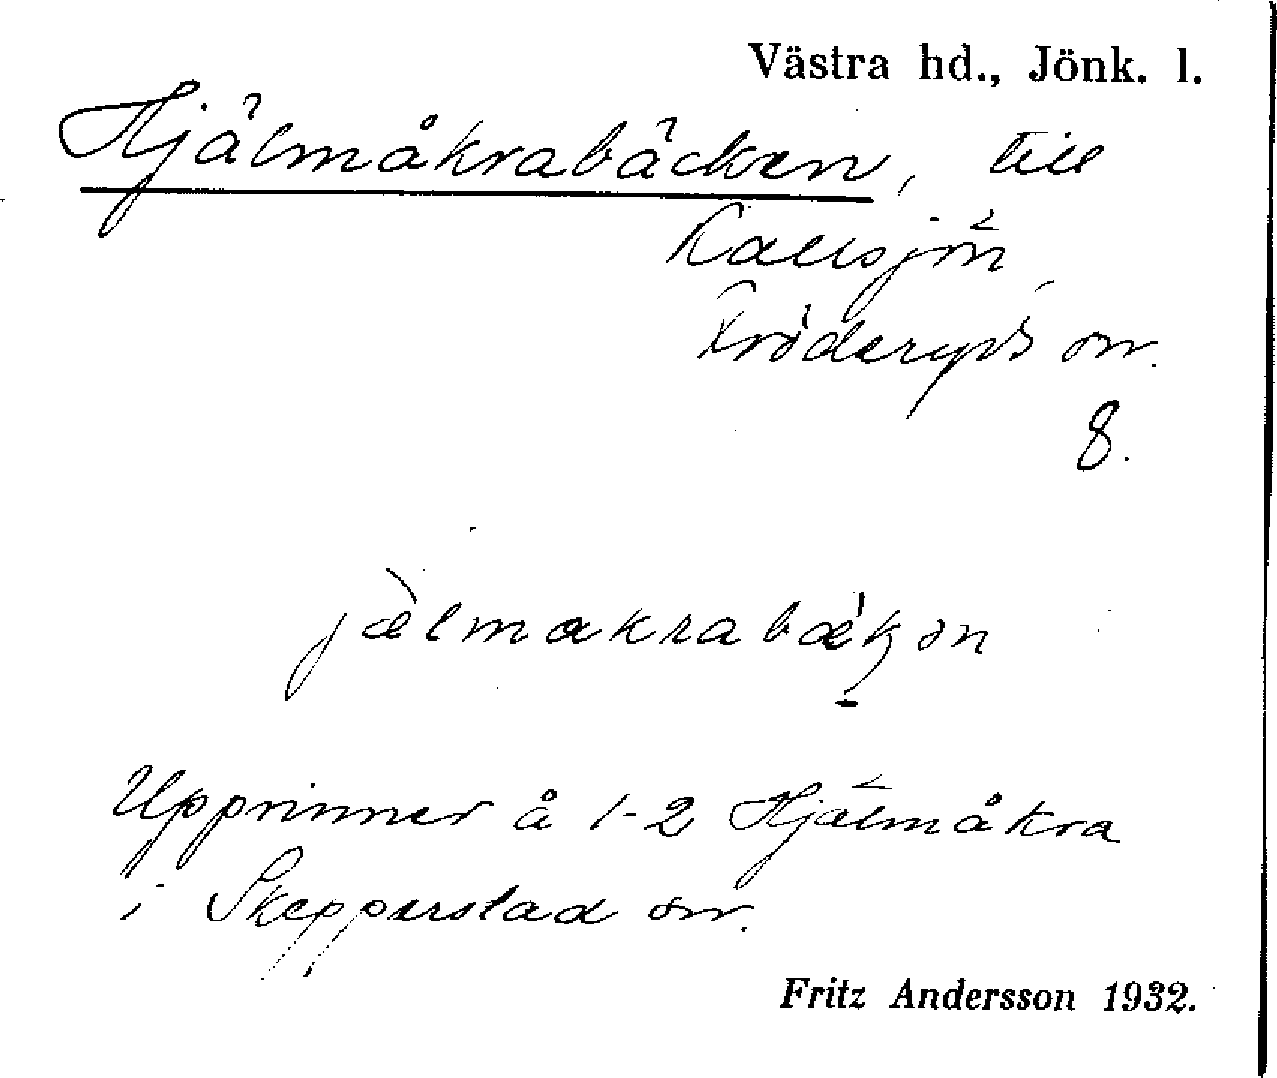 Västra hd., Jönk. l.
Hjälmåkrabäcken, till
Kallsjön,
Fröderyds sn.
8.
jælmakrabækən
Upprinner å 1-2 Hjälmåkra
i Skepperstad sn.
Fritz Andersson 1932.